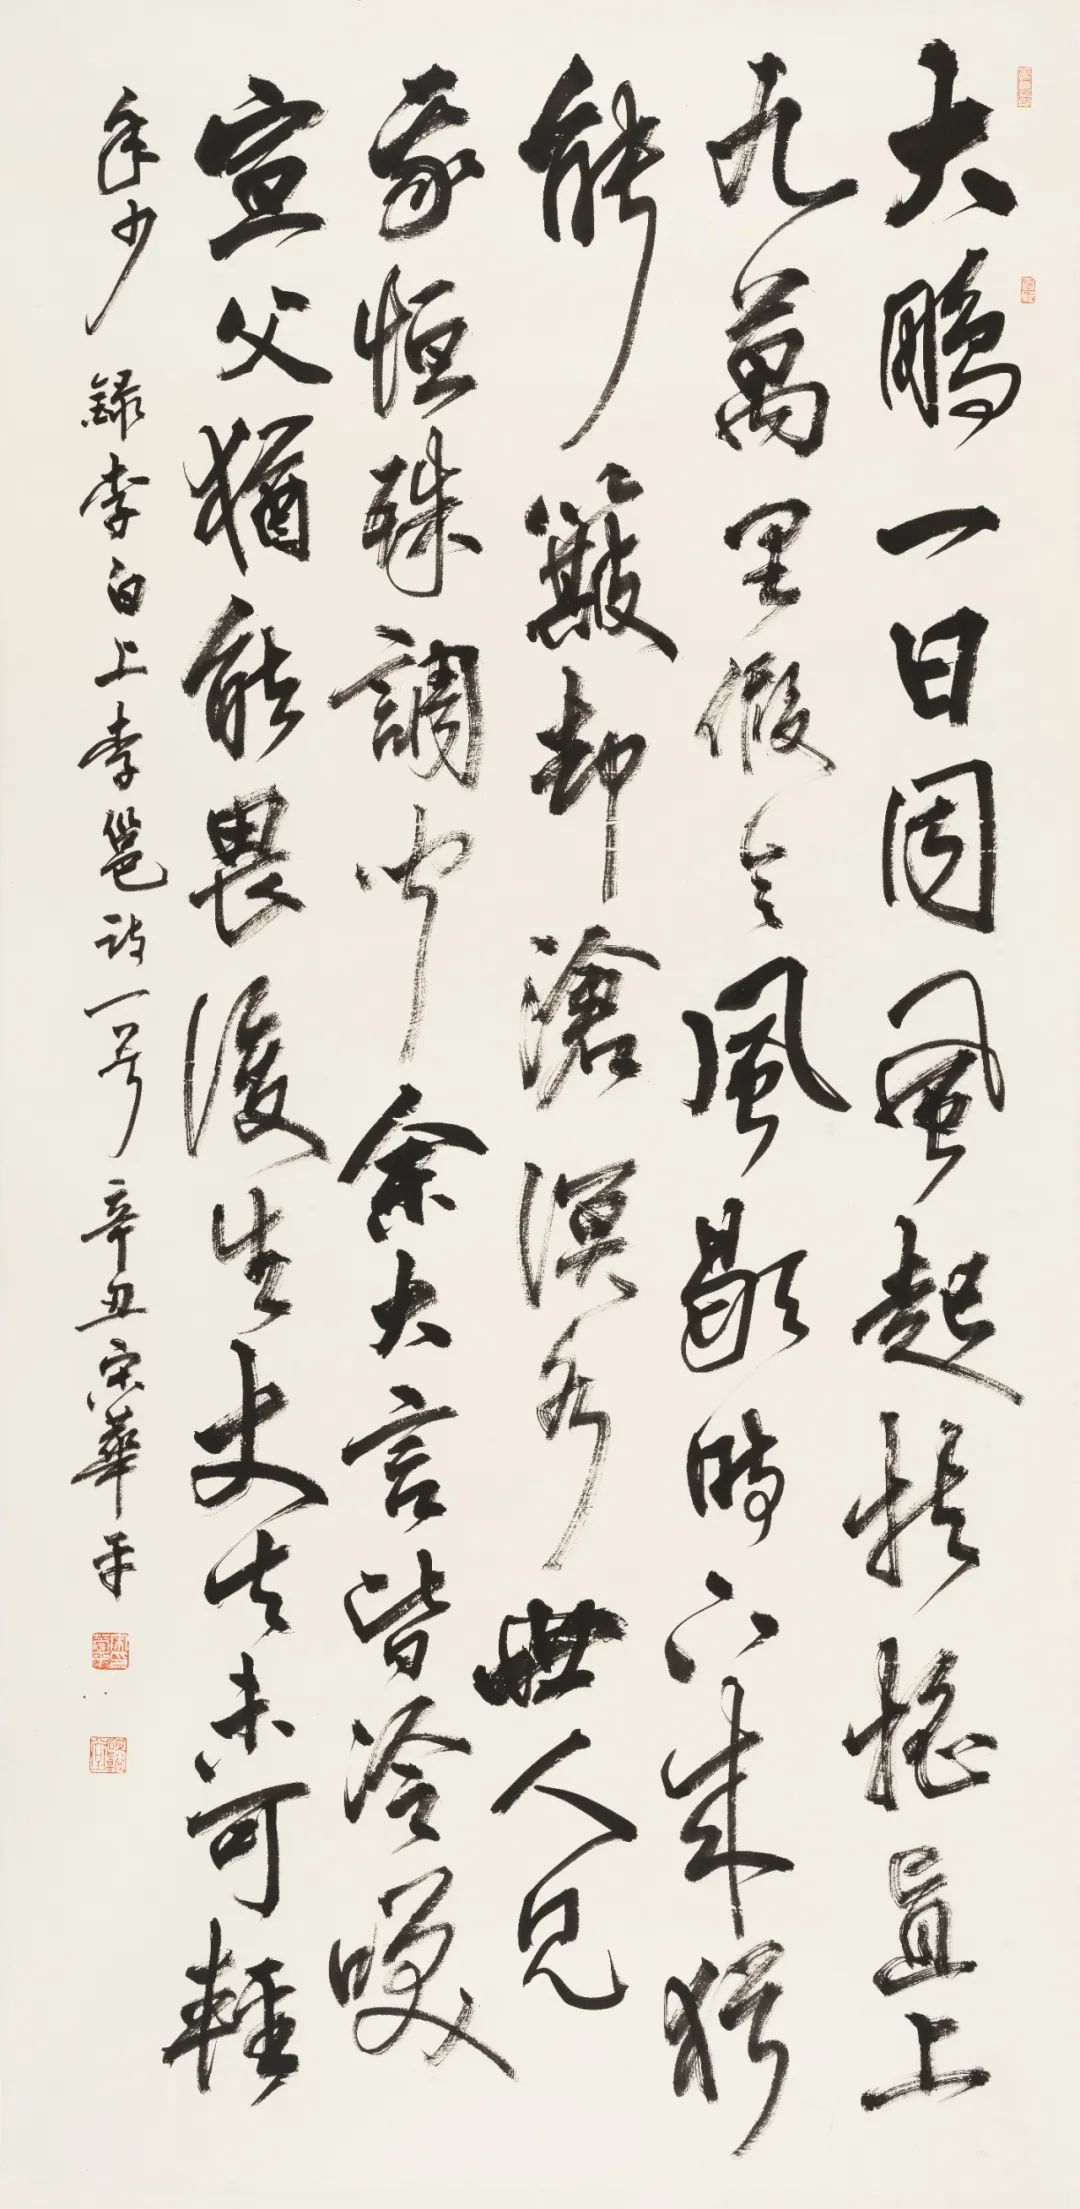 大鵬一日同風起扶摇直上
九萬里假令風歇時下来猶
能簸却滄溟水世人見
我恒殊調聞余大言皆冷咲
宣父猶能畏後生丈夫未可輕
年少 録李白上李邕詩一首 辛丑宋華平